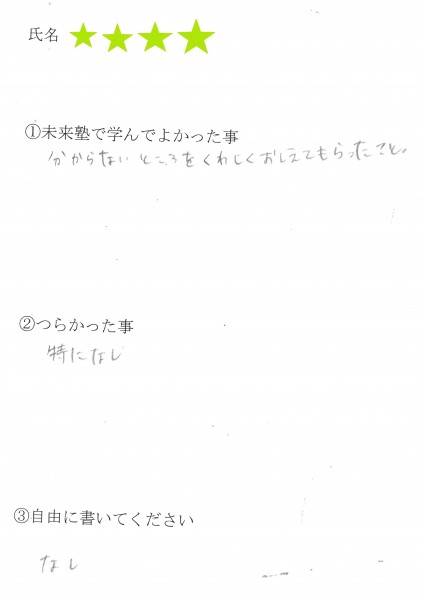 氏名 ★★★★
①未来塾で学んでよかった事
分からないところをくわしくおしえてもらったこと。
②つらかった事
特になし
③自由に書いてください
なし